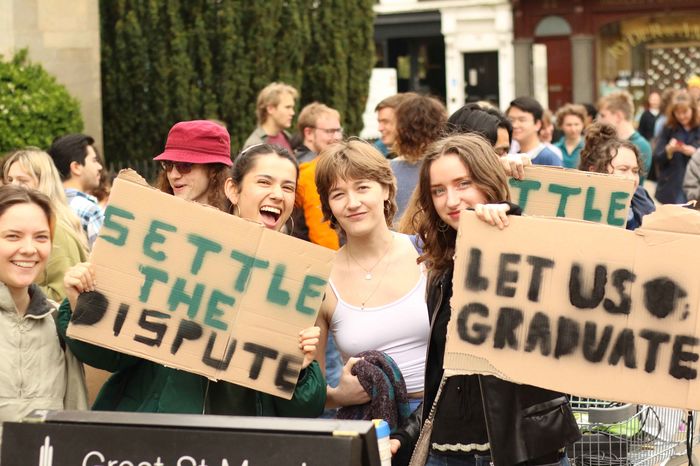 SETTLE
THE
DISPUTE
SETTLE
LET US
GRADUATE
Great St Mary